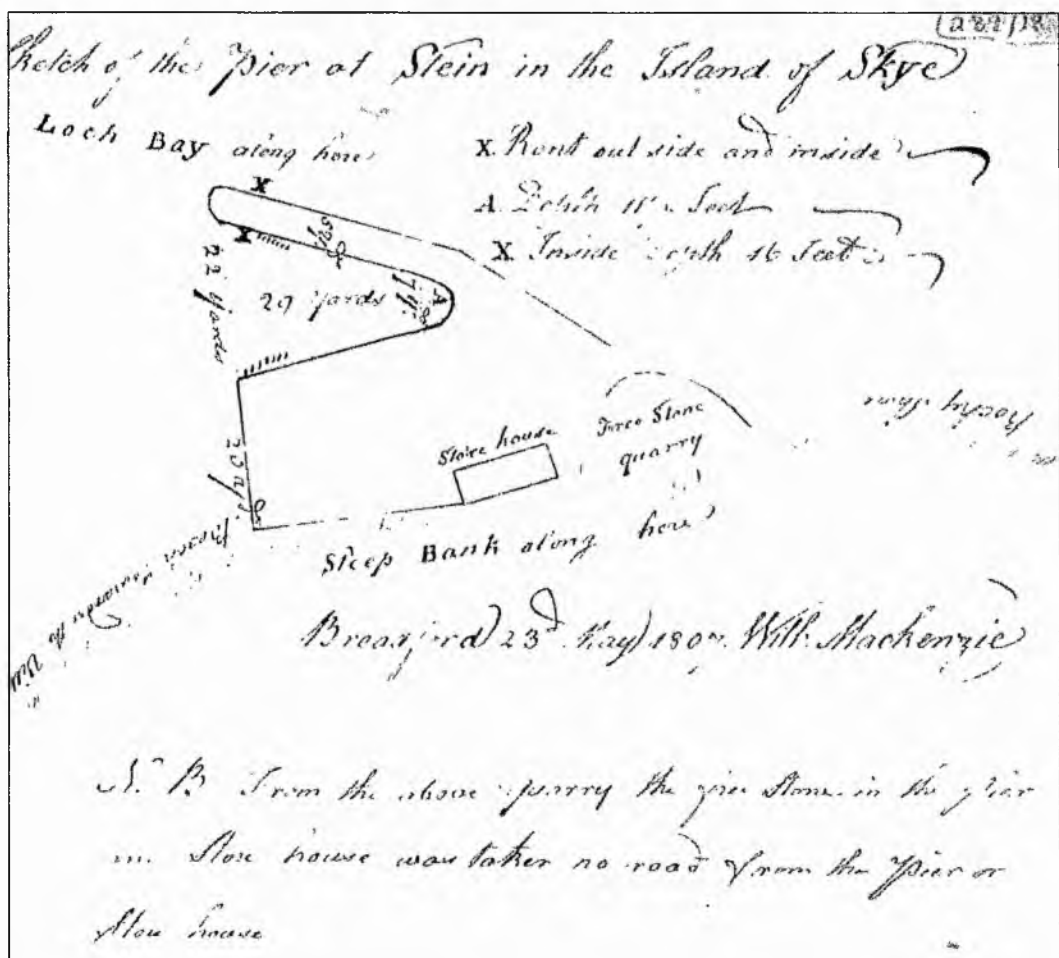 Sketch of the Pier at Stein in the Island of Skye
Loch Bay along here
X. Rent out side and inside
A. Depth 11 Feet
X Inside Depth 16 Feet
X
X
22 yards
29 yards
A
20 yds
Store house
Free Stone
quarry
Rocky Shore
Steep Bank along here
Road towards the
Broadford 23d May 180 Will. Mackenzie
N. B From the above quarry the free Stone in the pier
Store house was taken no road from the Pier or
Store house